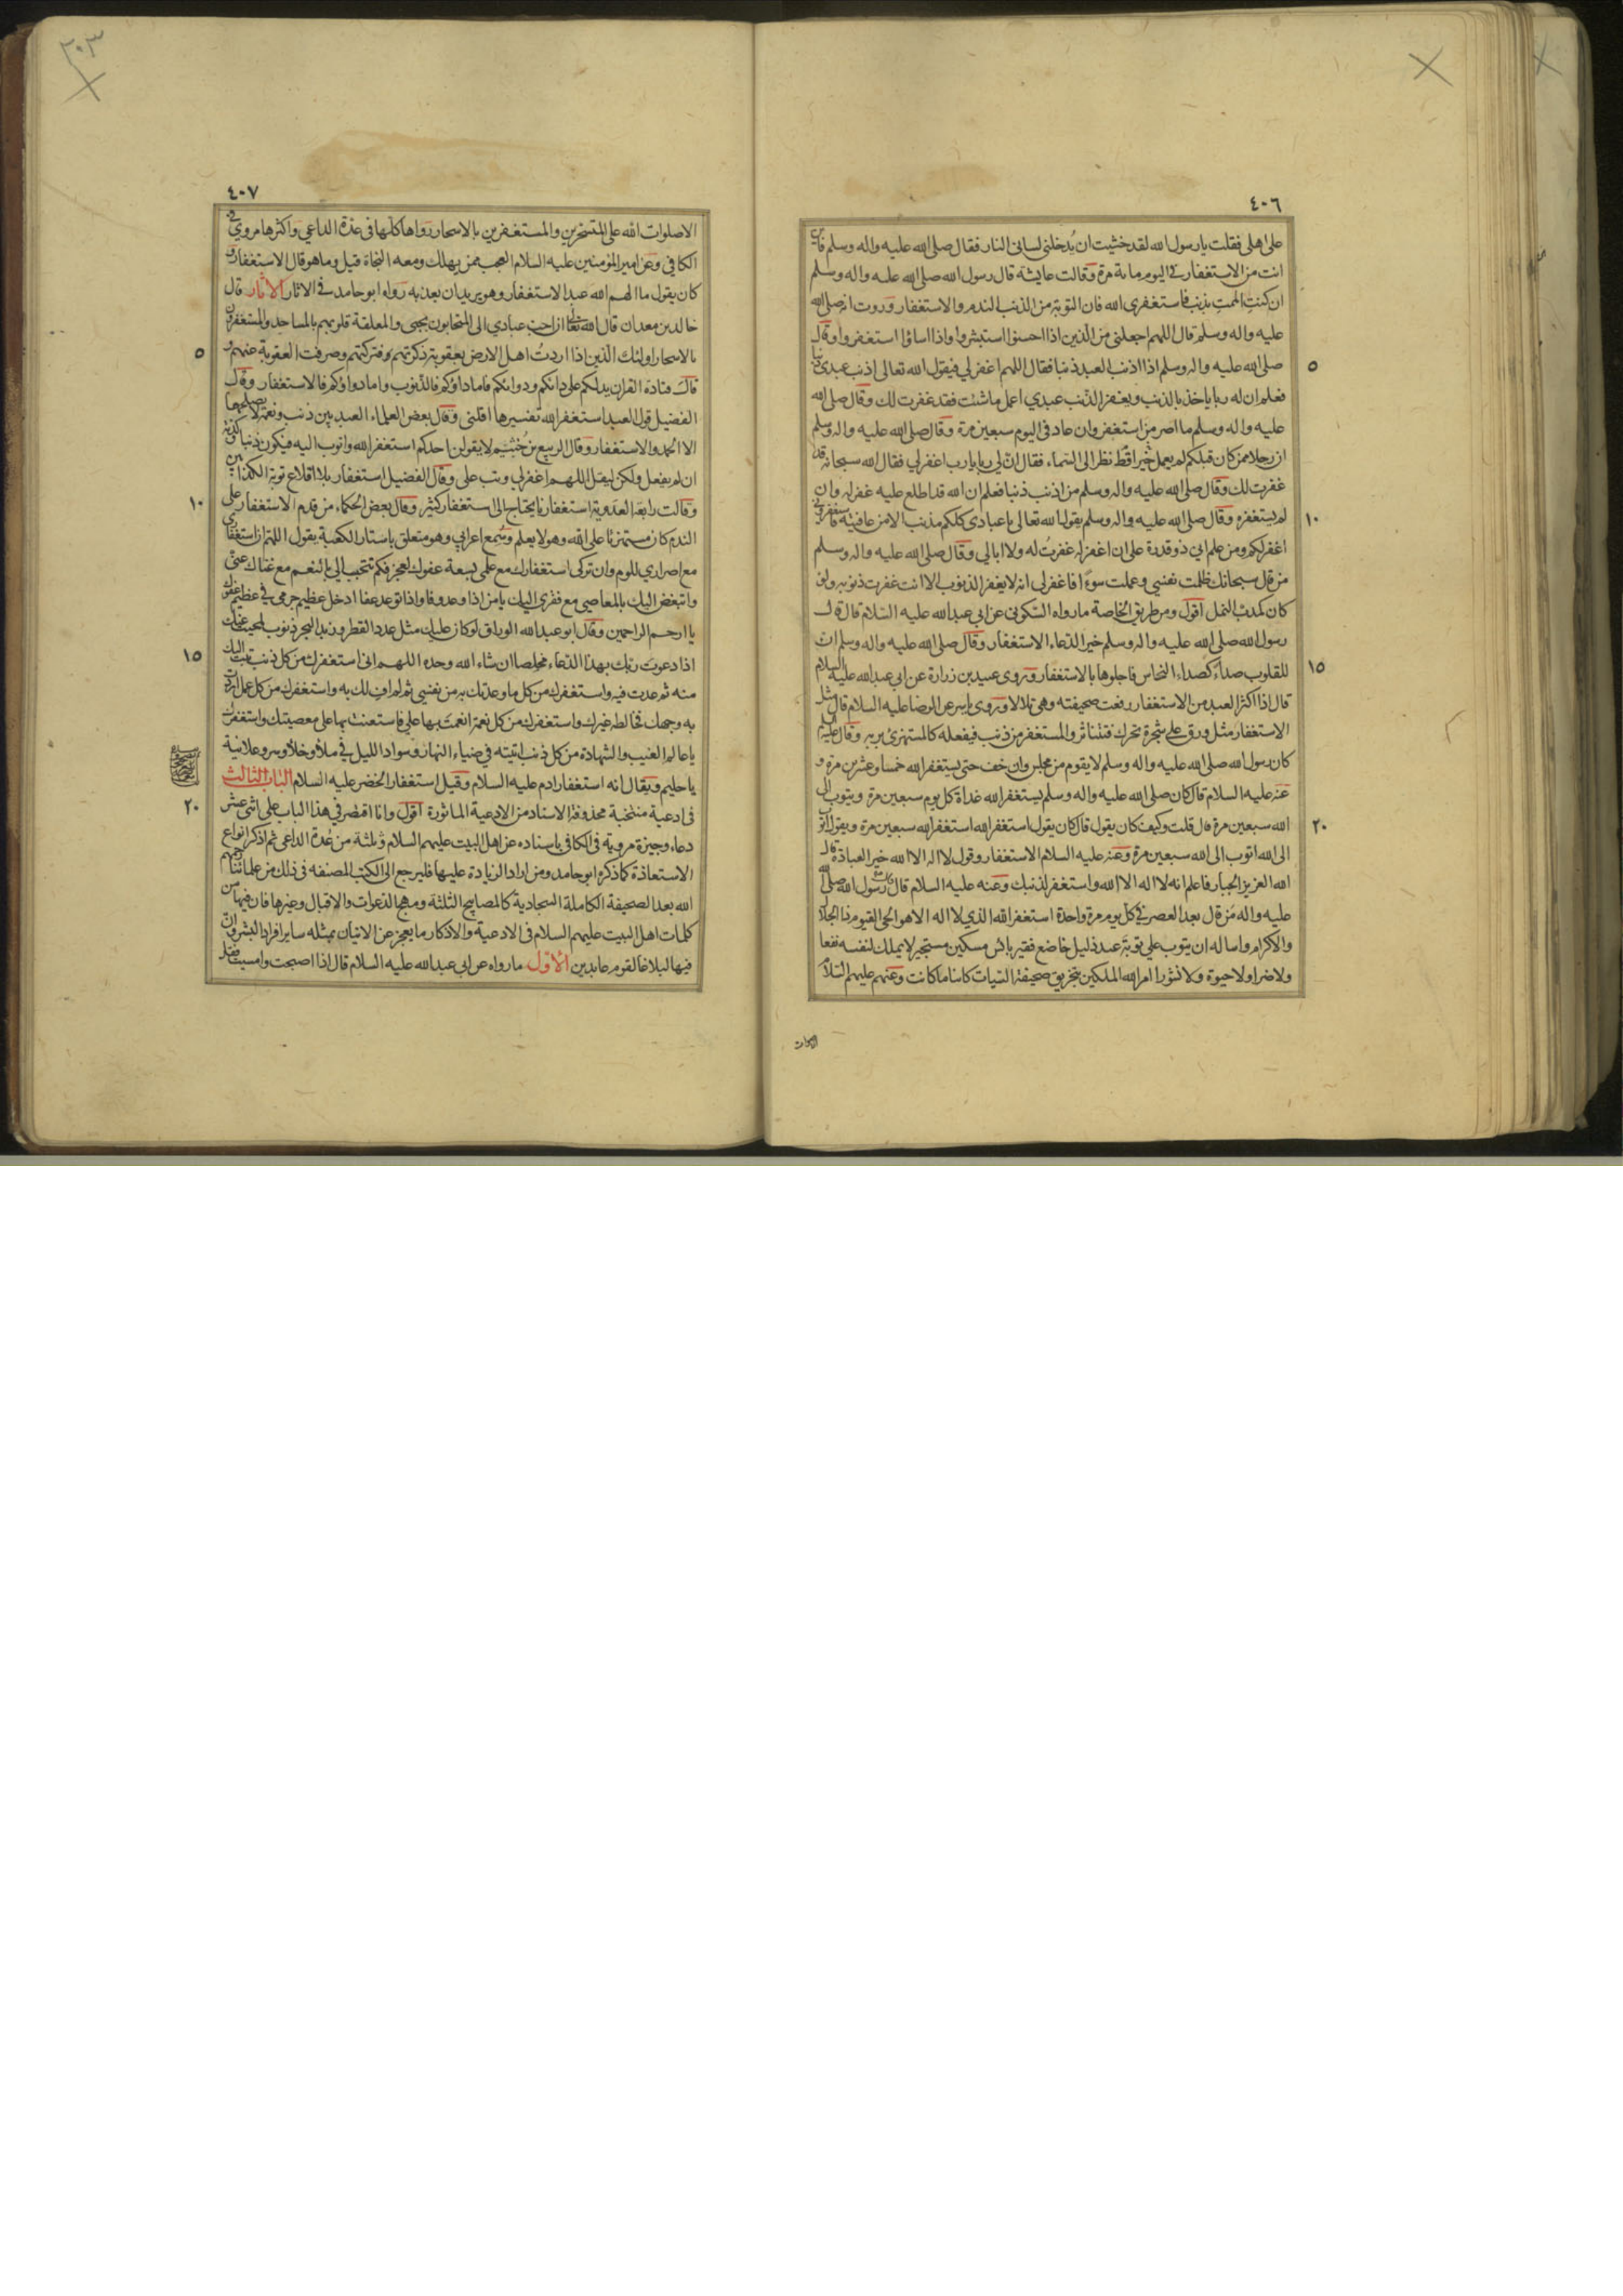 ٤٠٦
على اهلى فقلت يا رسول الله لقد خشيت ان يُدخلنى لسانى النار فقال صلى الله عليه واله وسلم فاين
انت من الاستغفار فى اليوم مائة مرة وقالت عايشة قال رسول الله صلى الله عليه واله وسلم
ان كنتِ الممتِ بذنب فاستغفرى الله فان التوبة من الذنب الندم والاستغفار وروت انه صلى الله
عليه واله وسلم قال اللهم اجعلنى من الذين اذا احسنوا استبشروا واذا اساؤا استغفروا وقال
صلى الله عليه واله وسلم اذا اذنب العبد ذنبا فقال اللهم اغفر لي فيقول الله تعالى اذنب عبدى ذنبا
٥
فعلم ان له ربا ياخذ بالذنب ويغفر الذنب عبدي اعمل ما شئت فقد غفرت لك وقال صلى الله
عليه واله وسلم ما اصر من استغفر وان عاد فى اليوم سبعين مرة وقال صلى الله عليه واله وسلم
ان رجلا ممن كان قبلكم لم يعمل خيرا قط نظر الى السماء فقال ان لي ربا يا رب اغفر لي فقال الله سبحانه قد
غفرت لك وقال صلى الله عليه واله وسلم من اذنب ذنبا فعلم ان الله قد اطلع عليه غفر له وان
لم يستغفره وقال صلى الله عليه واله وسلم يقول الله تعالى يا عبادى كلكم مذنب الا من عافيته فاستغفرونى
١٠
اغفر لكم ومن علم اني ذو قدرة على ان اغفر له غفرت له ولا ابالي وقال صلى الله عليه واله وسلم
من قال سبحانك ظلمت نفسي وعملت سوءً افاغفر لى انه لا يغفر الذنوب الا انت غفرت ذنوبه ولو
كان كمدب النمل اقول ومن طريق الخاصة ما رواه السكونى عن ابي عبد الله عليه السلام قال قال
رسول الله صلى الله عليه واله وسلم خير الدعاء الاستغفار وقال صلى الله عليه واله وسلم ان
للقلوب صداء كصداء النحاس فاجلوها بالاستغفار وروى عبيد بن زرارة عن ابي عبد الله عليه السلام
١٥
قال اذا اكثر العبد من الاستغفار رفعت صحيفته وهى تلالا وروى ياسر عن الرضا عليه السلام قال مثل
الاستغفار مثل ورق على شجرة تحرك فتناثر والمستغفر من ذنب فيفعله كالمستهزئ بربه وقال عليه السلام
كان رسول الله صلى الله عليه واله وسلم لا يقوم من مجلس وان خف حتى يستغفر الله خمسا وعشرين مرة و
عنه عليه السلام قال كان صلى الله عليه واله وسلم يستغفر الله غداة كل يوم سبعين مرة ويتوب الى
الله سبعين مرة قال قلت وكيف كان يقول قال كان يقول استغفر الله استغفر الله سبعين مرة ويقول اتوب
٢٠
الى الله اتوب الى الله سبعين مرة وعنه عليه السلام الاستغفار وقول لا اله الا الله خير العبادة قال
الله العزيز الجبار فاعلم انه لا اله الا الله واستغفر لذنبك وعنه عليه السلام قال رسول الله صلى الله
عليه واله من قال بعد العصر فى كل يوم مرة واحدة استغفر الله الذي لا اله الا هو الحى القيوم ذا الجلال
والاكرام واساله ان يتوب علي توبة عبد ذليل خاضع فقير بائس مسكين مستجير لا يملك لنفسه نفعا
ولا ضرا ولا حيوة ولا نشورا امر الله الملكين بتخريق صحيفة السيات كائنا ما كانت وعنهم عليهم السلام
٣٠٣
٤٠٧
الا صلوات الله على المتسحرين والمستغفرين بالاسحار رواها كلها فى عدة الداعي واكثرها مروي فى
الكافى وعن امير المؤمنين عليه السلام العجب ممن يهلك ومعه النجاة قيل وما هو قال الاستغفار و
كان يقول ما الهم الله عبدا الاستغفار وهو يريد ان يعذبه رواه ابو حامد فى الاثار الاثار قال
خالد بن معدان قال الله تعالى ان احب عبادي الى المتحابون بحبى والمعلقة قلوبهم بالمساجد والمستغفرون
بالاسحار اولئك الذين اذا اردتُ اهل الارض بعقوبة ذكرتهم وفتركتهم وصرفت العقوبة عنهم و
٥
قال قتادة القران يدلكم على دائكم ودوائكم فاما داؤكم فالذنوب واما دواؤكم فالاستغفار وقال
الفضيل قول العبد استغفر الله تفسيرها اقلنى وقال بعض العلماء العبد بين ذنب ونعمة لا يصلحها
الا الحمد والاستغفار وقال الربيع بن خُثيم لا يقولن احدكم استغفر الله واتوب اليه فيكون ذنبا وكذبة
ان لم يفعل ولكن ليقل اللهم اغفر لي وتب على وقال الفضيل استغفار بلا اقلاع توبة الكذابين
وقالت رابعة العدوية استغفارنا يحتاج الى استغفار كثير وقال بعض الحكماء من قدم الاستغفار على
١٠
الندم كان مستهزئا على الله وهو لا يعلم وسُمع اعرابي وهو متعلق باستار الكعبة يقول اللهم ان استغفارى
مع اصراري للوم وان تركى استغفارك مع علمى بسعة عفوك لعجز فكم تتحبب الي بالنعم مع غناك عنى
واتبغض اليك بالمعاصي مع فقرى اليك يا من اذا وعد وفا واذا توعد عفا ادخل عظيم جرمى في عظيم عفوك
يا ارحم الراحمين وقال ابو عبد الله الوراق لو كان عليك مثل عدد القطر وزبد البحر ذنوب لمحيت عنك
اذا دعوت ربك بهذا الدعاء مخلصا ان شاء الله وحده اللهم انى استغفرك من كل ذنب تبت اليك
١٥
منه ثم عدت فيه واستغفرك من كل ما وعدتك به من نفسي ثم لم اوف لك به واستغفرك من كل عمل اردت
به وجهك فخالطه غيرك واستغفرك من كل نعمة انعمت بها على فاستعنت بها على معصيتك واستغفرك
يا عالم الغيب والشهادة من كل ذنب اتيته في ضياء النهار وسواد الليل في ملأ وخلأ وسر وعلانية
يا حليم ويقال انه استغفار ادم عليه السلام وقيل استغفار الخضر عليه السلام الباب الثالث
فى ادعية منتخبة محذوفة الاسناد من الادعية الماثورة اقول وانا اقتصر في هذا الباب على اثنى عشر
٢٠
دعاء وجيزة مروية فى الكافى باسناده عن اهل البيت عليهم السلام وثلثة من عُدة الداعى ثم اذكر انواع
الاستعاذة كما ذكره ابو حامد ومن اراد الزيادة عليها فليرجع الى الكتب المصنفه فى ذلك من علمائنا رحمهم
الله بعد الصحيفة الكاملة السجادية كالمصابيح الثلثة ومهج الدعوات والاقبال وغيرها فان فيها من
كلمات اهل البيت عليهم السلام فى الادعية والاذكار ما يعجز عن الاتيان بمثله ساير افراد البشر وان
فيها لبلاغا لقوم عابدين الاول ما رواه عن ابي عبد الله عليه السلام قال اذا اصبحت وامسيت فقل